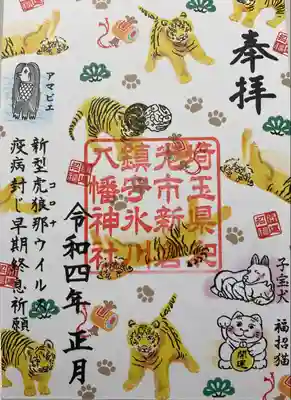 奉拝
埼玉県和
光市新倉
鎮守氷川
八幡神社
令和四年正月
アマビエ
新型虎狼那ウイルス
コロナ
疫病封じ早期終息祈願
子宝犬
福招猫
開運